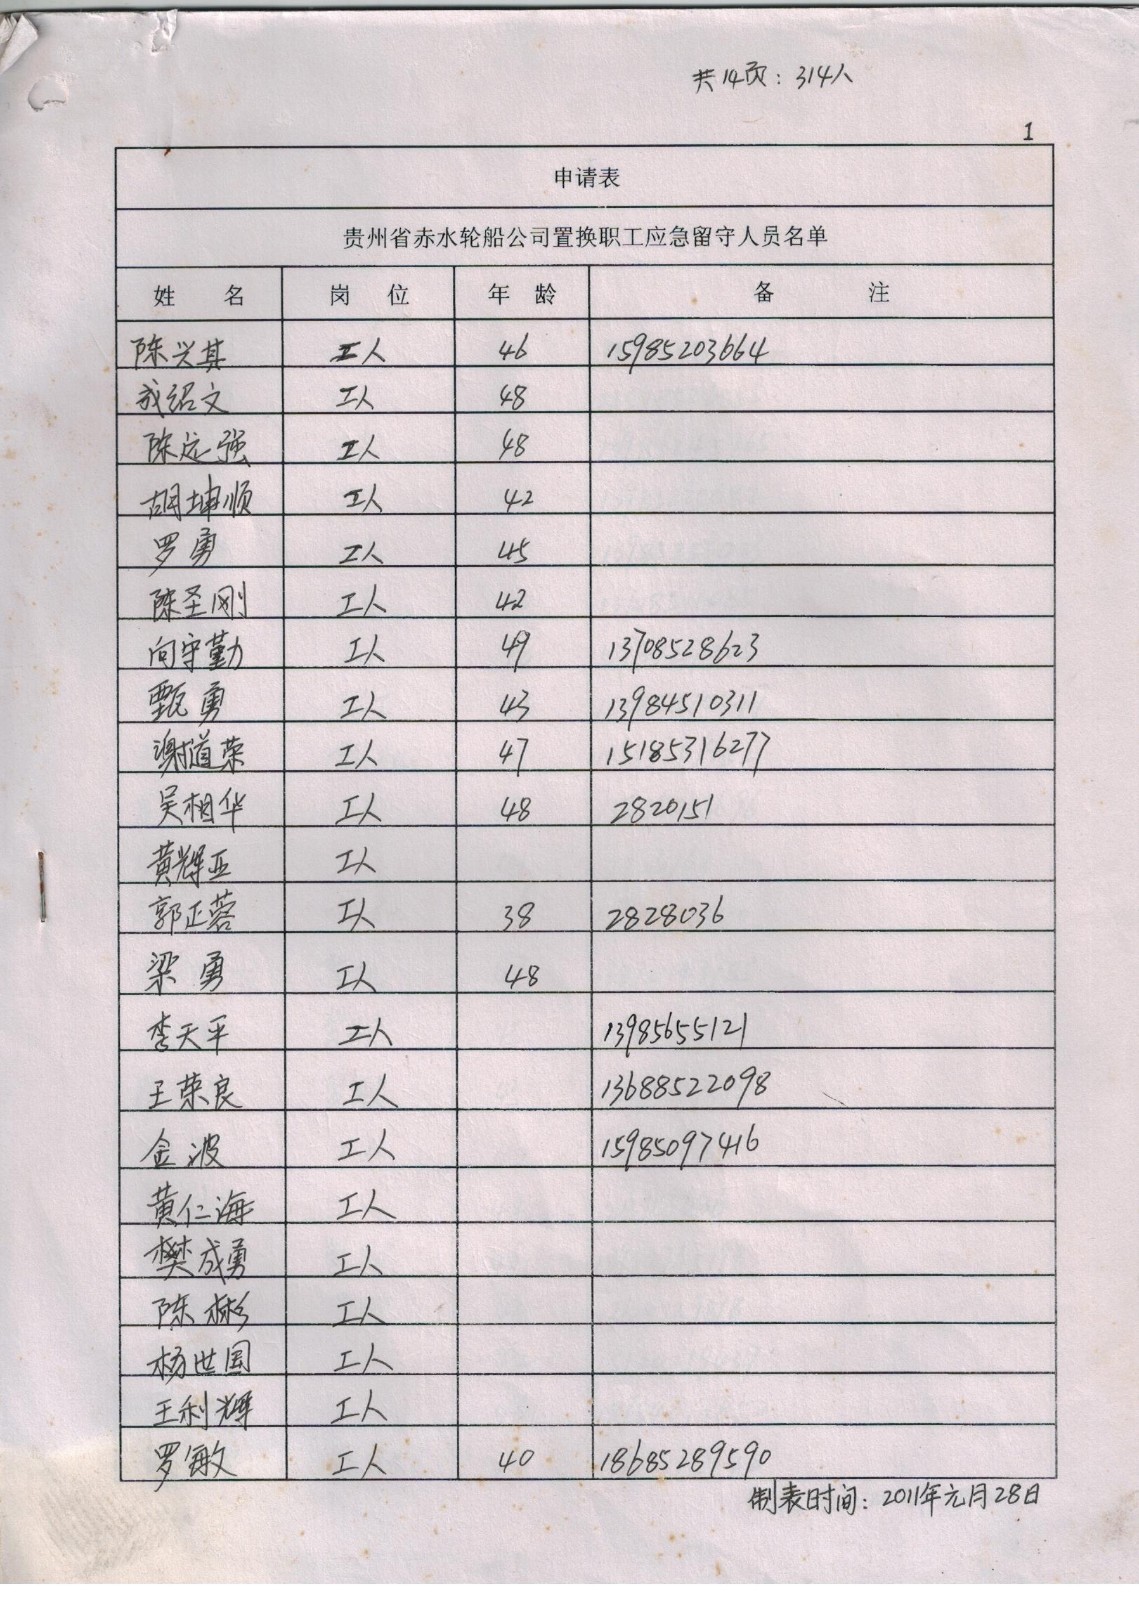 共14页：314人
1
申请表
贵州省赤水轮船公司置换职工应急留守人员名单
姓 名 岗 位 年 龄 备 注
陈兴其 工人 46 15985203664
成绍文 工人 48
陈远强 工人 48
胡坤顺 工人 42
罗勇 工人 45
陈圣刚 工人 42
向守勤 工人 49 13708528623
甄勇 工人 43 13984510311
谢道荣 工人 47 15185316277
吴相华 工人 48 2820151
黄辉亚 工人
郭正蓉 工人 38 2828036
梁勇 工人 48
李天平 工人 13985655121
王荣良 工人 13688522098
金波 工人 15985097416
黄仁海 工人
樊成勇 工人
陈彬 工人
杨世国 工人
王利辉 工人
罗敏 工人 40 18685289590
制表时间：2011年元月28日